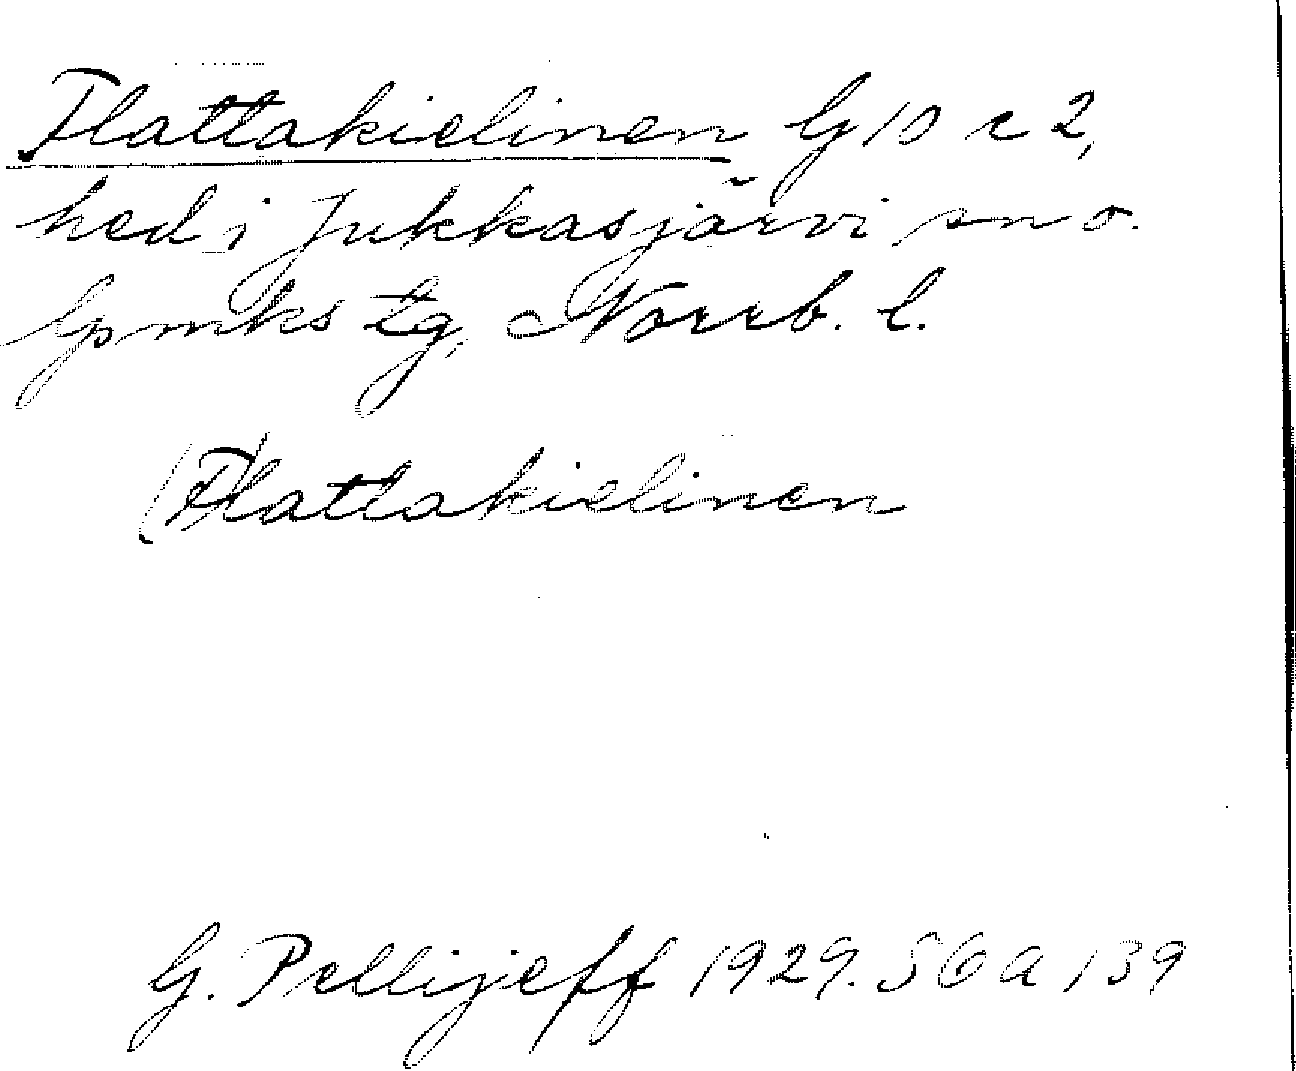 Flattakielinen G 10 c 2,
hed i Jukkasjärvi sn o.
lpmks tg, Norrb. l.
(F)lattakielinen
G. Pellijeff 1929. S6a 139